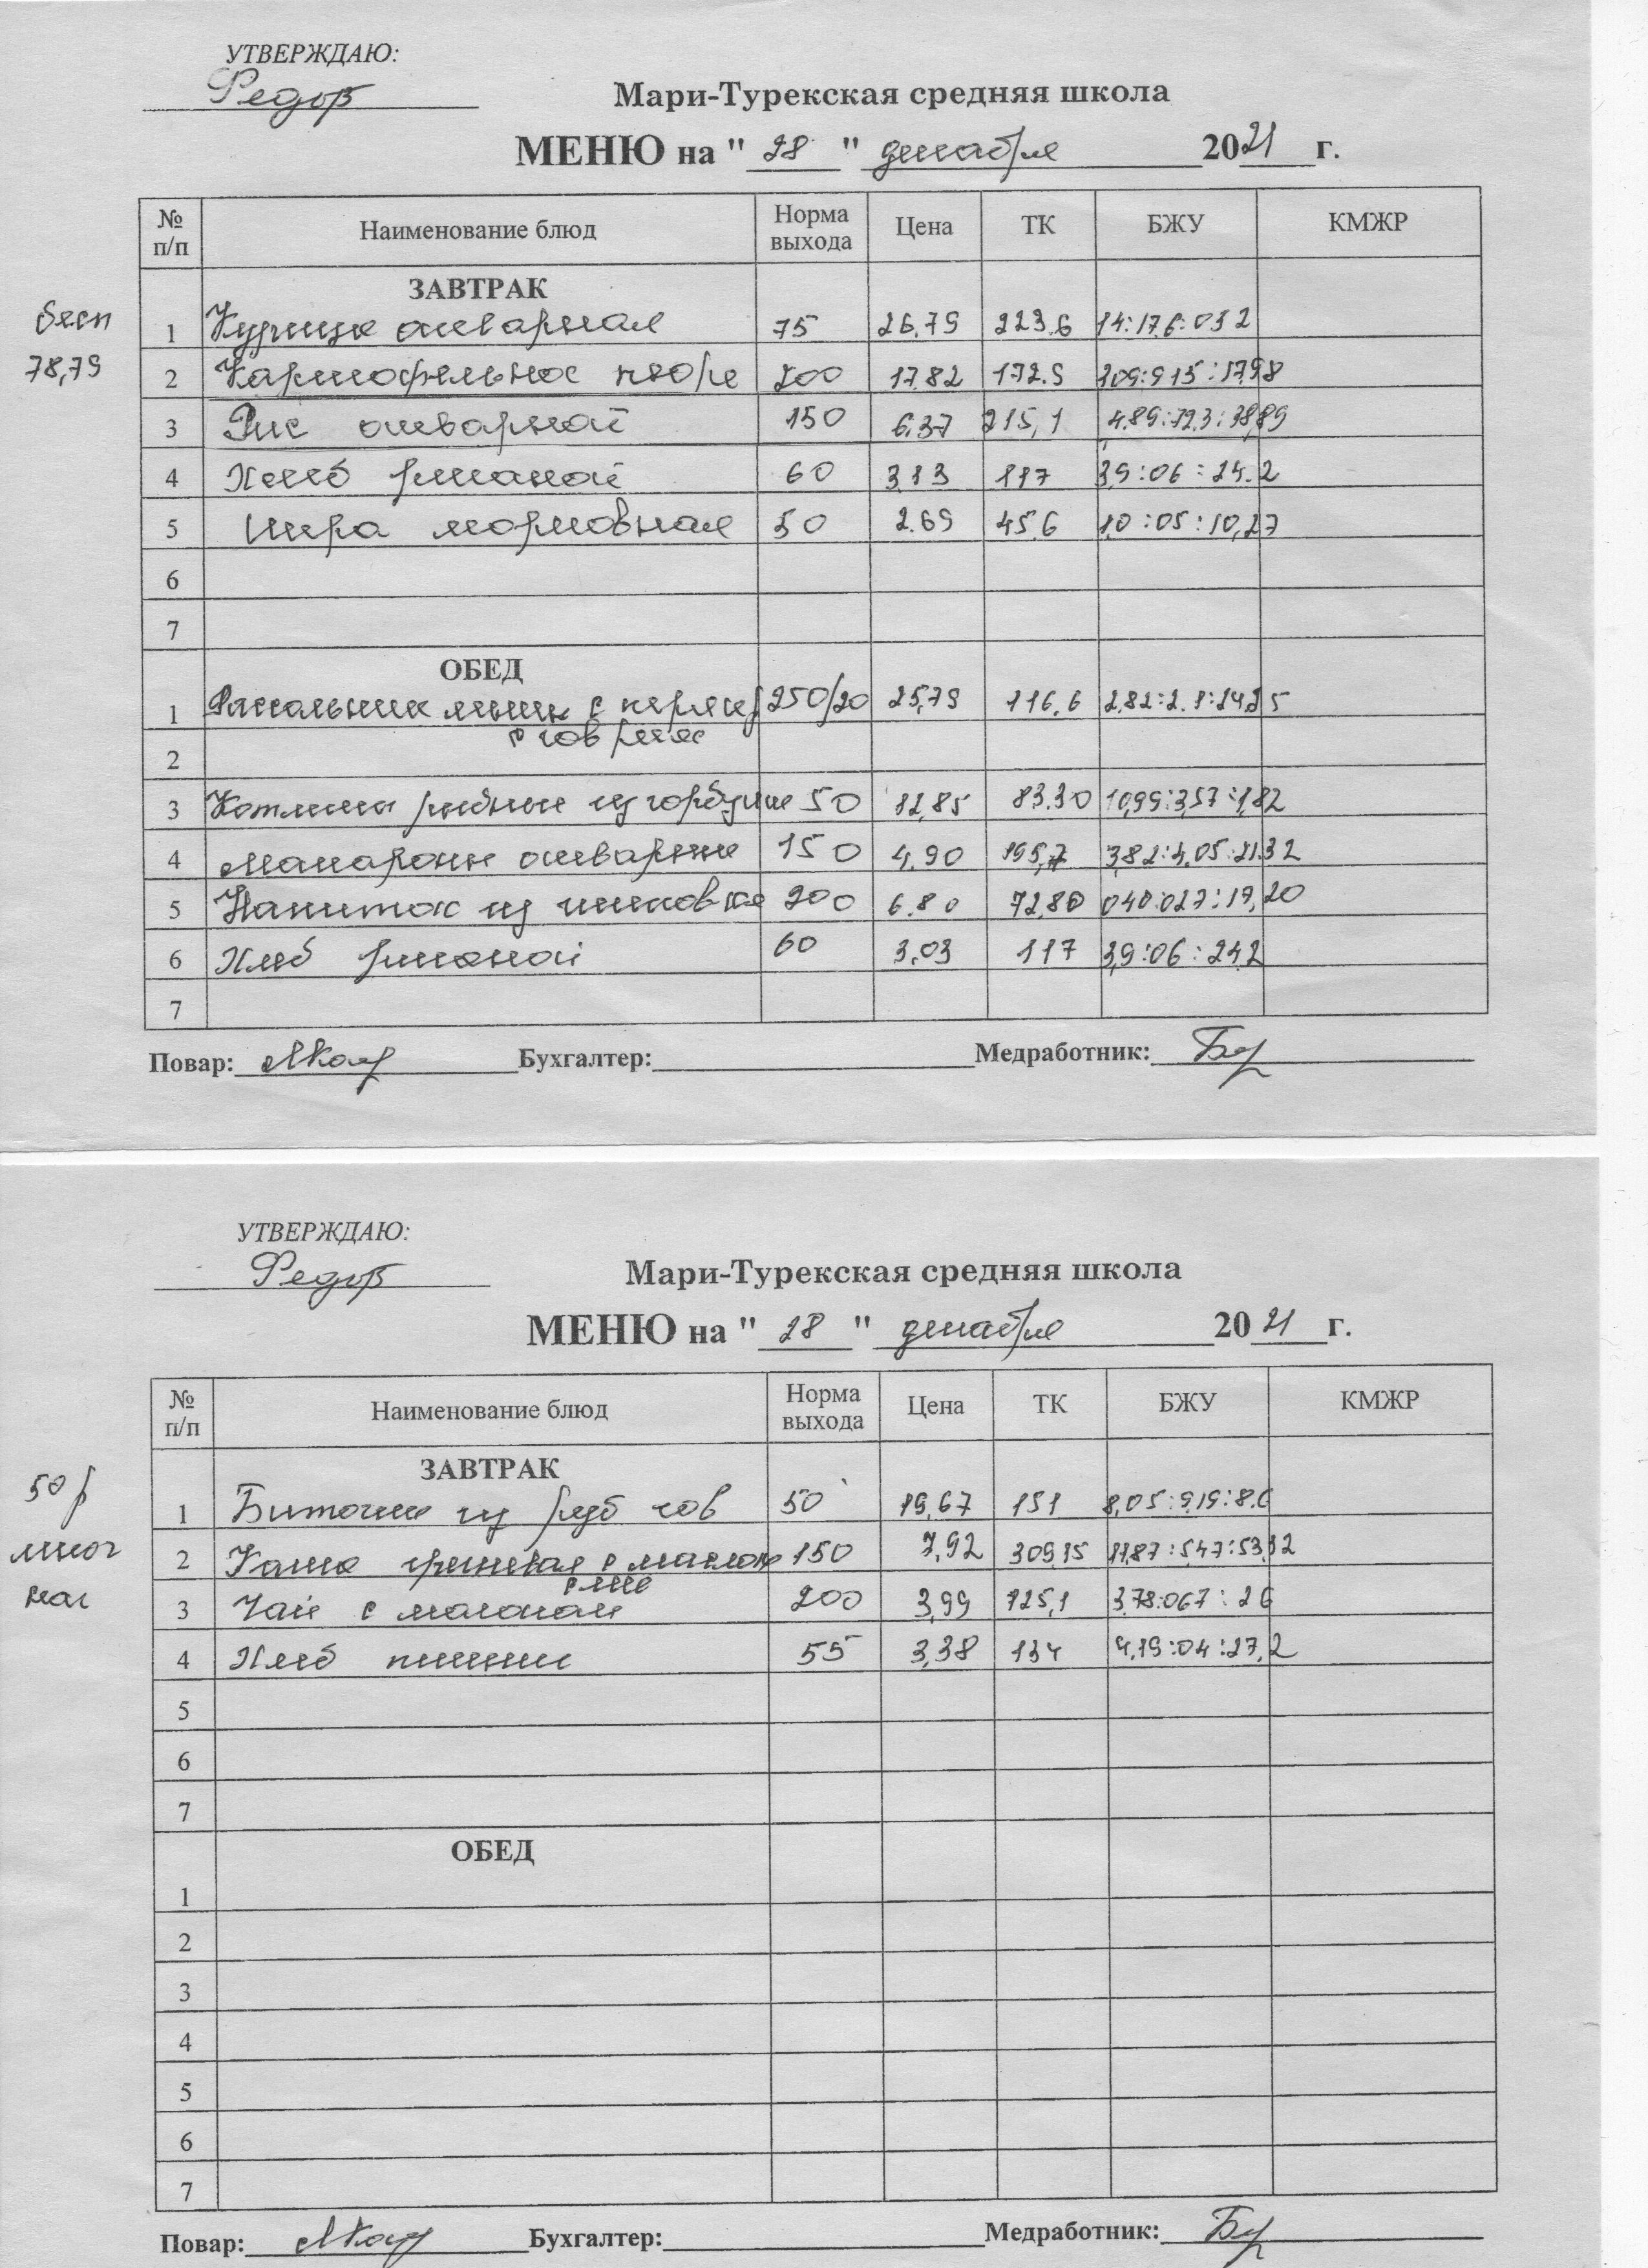 УТВЕРЖДАЮ:
Федор
Мари-Турекская средняя школа
МЕНЮ на " 28 " декабря 2021 г.
№ п/п Наименование блюд Норма выхода Цена ТК БЖУ КМЖР
бесп
78,79
ЗАВТРАК
1 Курица отварная 75 26,79 223.6 14:17.6:032
2 Картофельное пюре 200 17.82 172.9 109:9.15:17,98
3 Рис отварной 150 6.37 215,1 4.89:12.3:38,89
4 Хлеб ржаной 60 3,13 117 3,9:06:24.2
5 Икра морковная 50 2.69 45.6 1,0:05:10,27
6
7
ОБЕД
1 Рассольник 250/20 25,79 116,6 2.82:2.1:14,25
с гов
2
3 Котлеты рыбные из горбуши 50 12,85 83.30 10,99:3,57:1,82
4 Макароны отварные 150 4,90 195,7 3,82:4,05:21.32
5 Напиток из шиповника 200 6.80 72,80 040:027:17,20
6 Хлеб ржаной 60 3,03 117 3,9:06:24,2
7
Повар: Бухгалтер: Медработник:
УТВЕРЖДАЮ:
Федор
Мари-Турекская средняя школа
МЕНЮ на " 28 " декабря 2021 г.
№ п/п Наименование блюд Норма выхода Цена ТК БЖУ КМЖР
50 р
мног
ЗАВТРАК
1 Биточки из руб гов 50 19,67 151 8,05:9,19:8.6
2 Каша гречневая с маслом 150 7,92 309,15 11,87:5,47:53,12
слив
3 Чай с молоком 200 3,99 125,1 3,78:067:26
4 Хлеб пшенич 55 3,38 134 4,19:04:27,2
5
6
7
ОБЕД
1
2
3
4
5
6
7
Повар: Бухгалтер: Медработник: